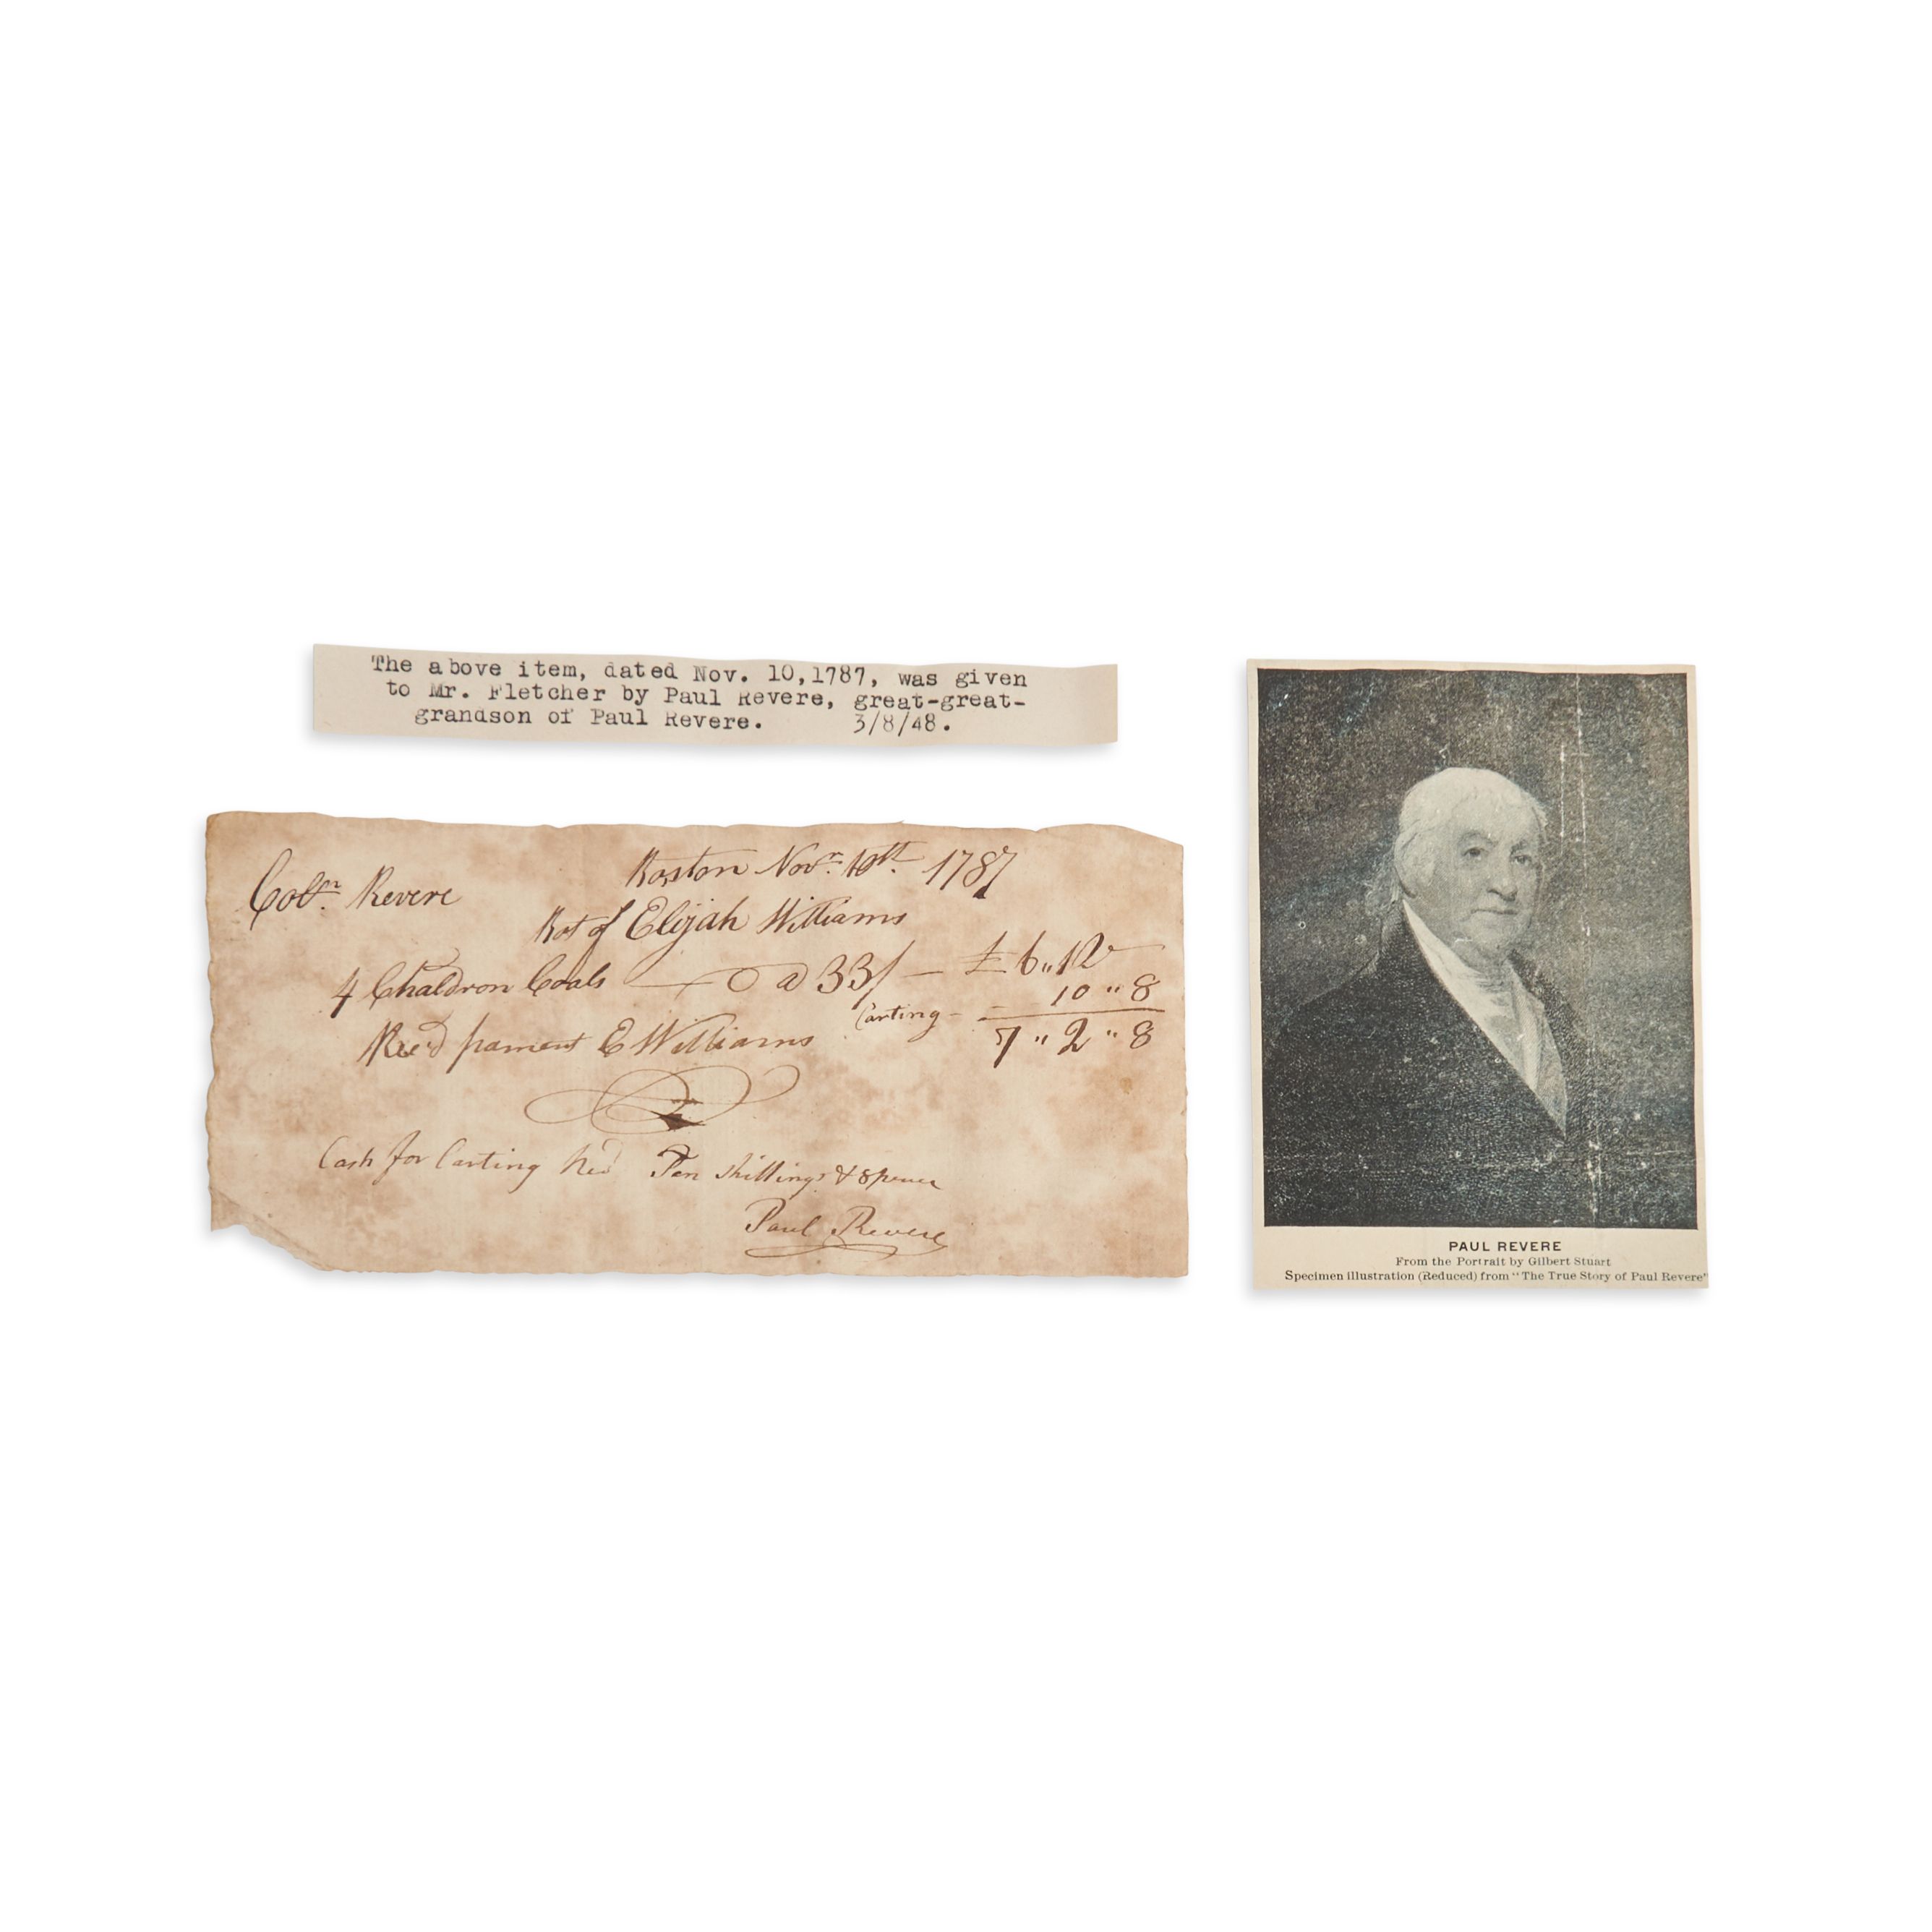 The above item, dated Nov. 10,1787, was given
to Mr. Fletcher by Paul Revere, great-great-
grandson of Paul Revere. 3/8/48.
Boston Novr. 10th. 1787
Coln. Revere
Bot of Elijah Williams
4 Chaldron Coals — a 33/ — £ 6 " 12
Carting - 10 " 8
7 " 2 " 8
Rec'd pament E Williams
Cash for Carting Recd Ten shillings & 8 pence
Paul Revere
PAUL REVERE
From the Portrait by Gilbert Stuart
Specimen illustration (Reduced) from "The True Story of Paul Revere"